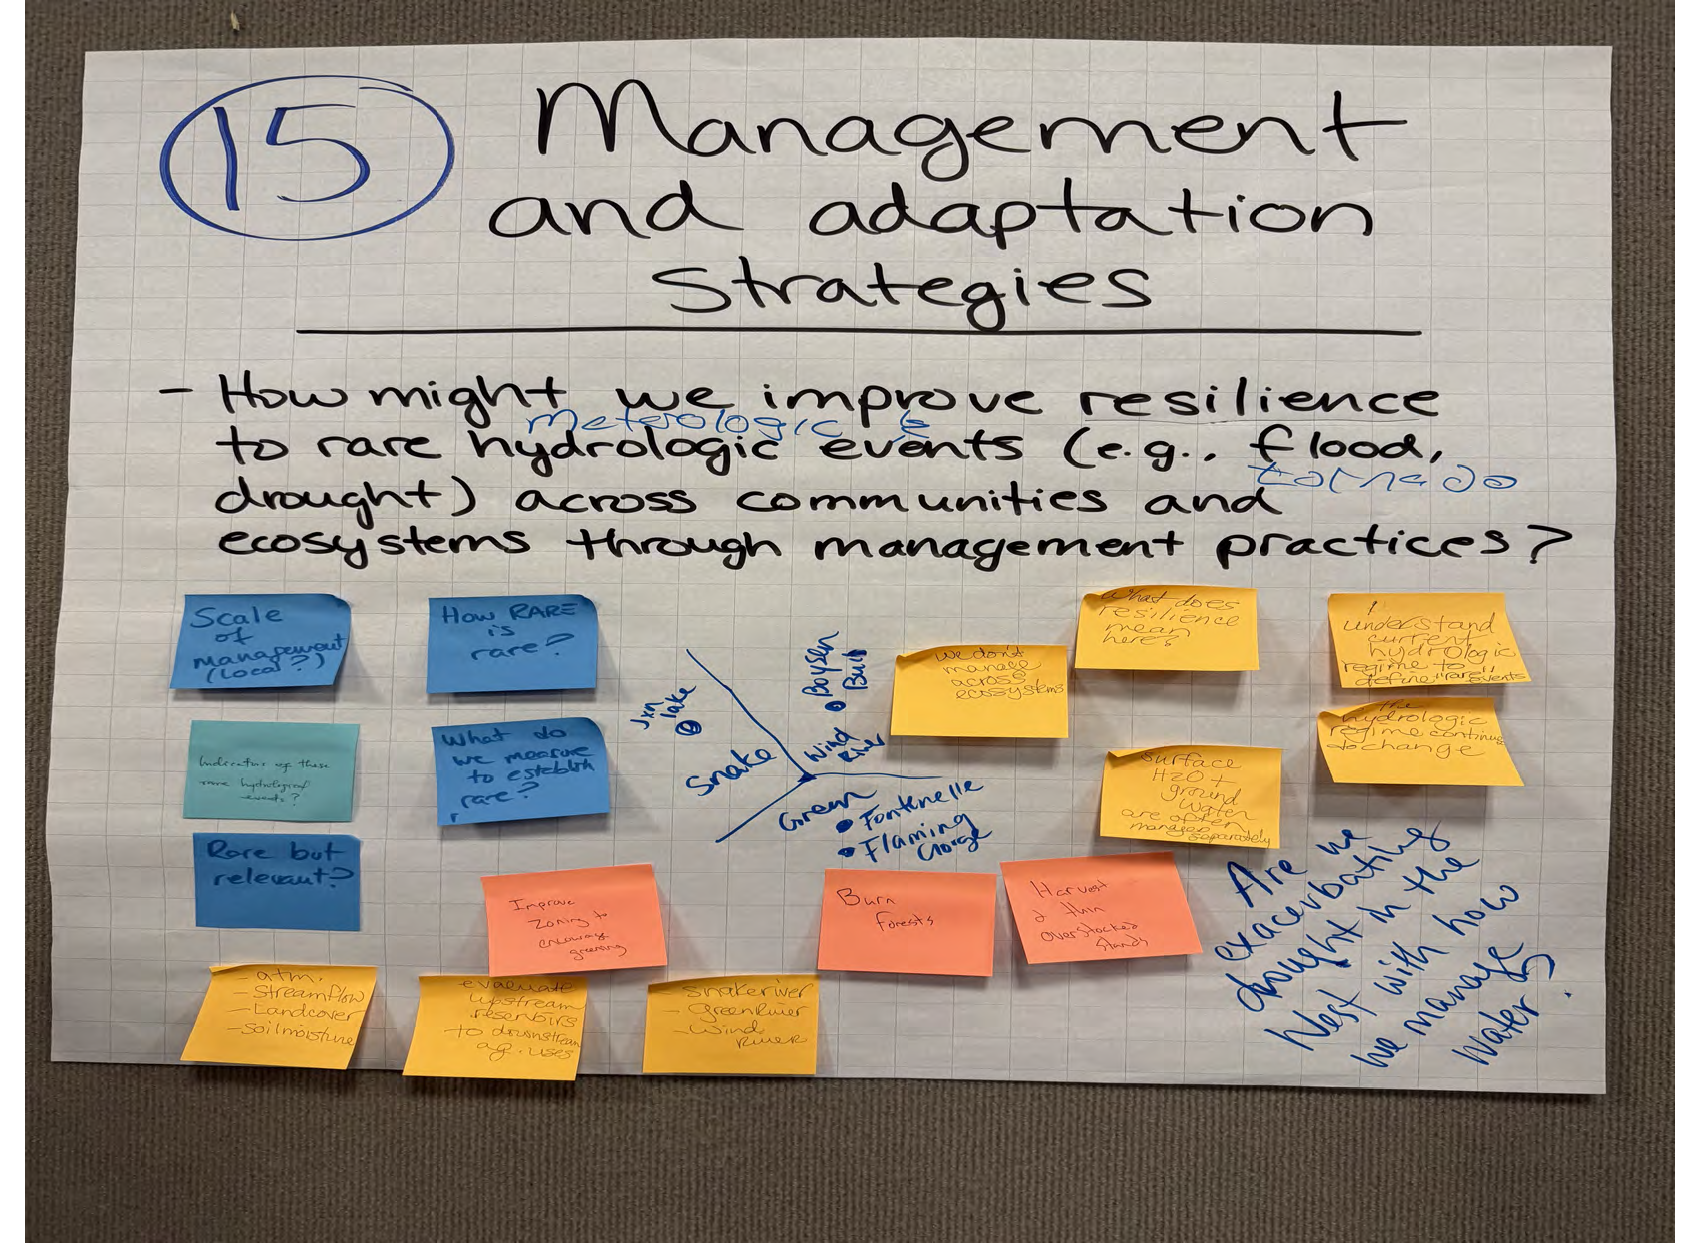 15
Management
and adaptation
strategies
- How might we improve resilience
meterologic &
to rare hydrologic events (e.g., flood,
tornado
drought) across communities and
ecosystems through management practices?
Scale
of
management
(local?)
How RARE
is
rare?
Indicators of these
rare hydrological
events?
What do
we measure
to establish
rare?
Rare but
relevant?
Jxn
lake
Snake
Boysen
Wind
River
Green
Fontenelle
Flaming
Gorge
we don't
manage
across
ecosystems
What does
resilience
mean
here?
understand
current
hydrologic
regime to
define "rare" events
the
hydrologic
regime continues
to change
surface
H2O +
ground
water
are often
manages
separately
Improve
zoning to
greening
Burn
forests
Harvest
& thin
overstocked
stands
Are we
exacerbating
drought in the
West with how
we manage
water?
- atm.
- Streamflow
- Landcover
- Soil moisture
evaluate
upstream
reservoirs
to downstream
ag. uses
- Snake river
- Green River
- Wind
River